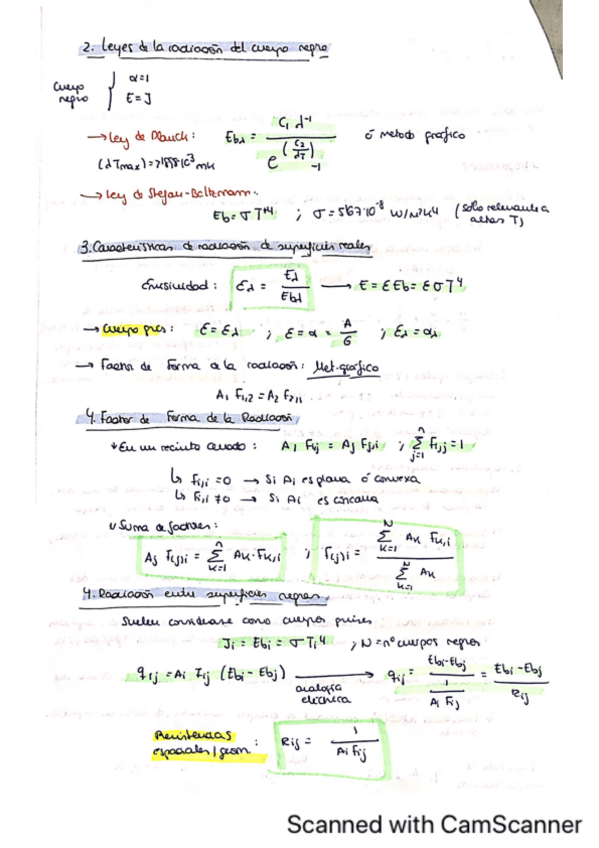 2. Leyes de la radiación del cuerpo negro
Cuerpo negro { α=1
E=J
→ Ley de Planck: Ebλ = C1 λ^-1 / e^(C2/λT) -1 ó metodo grafico
→ Ley de Stefan-Boltzmann:
Eb = σ T^4 ; σ = 5'67·10^-8 W/m²K4 (solo relevante a altas T)
3. Características de radiación de superficies reales
Emisividad: Ελ = Eλ / Ebλ → E = E Eb = E σ T^4
→ Cuerpo gris: E = Eλ ; E = α = A/G ; Eλ = αλ
→ Factor de Forma de la radiación: Met. gráfico
A1 F1,2 = A2 F2,1
4. Factor de Forma de la Radiación
En un recinto cerrado: Ai Fij = Aj Fj,i ; Σ(j=1, n) Fi,j = 1
↳ Fi,i = 0 → Si Ai es plana ó convexa
↳ Fi,i ≠ 0 → Si Ai es cóncava
Suma de factores:
Aj F(j)i = Σ(k=1, n) Ak·Fk,i ; F(j)i = Σ(k=1, N) Ak Fk,i / Σ(k=1, N) Ak
4. Radiación entre superficies negras
Suelen considerarse como cuerpos grises
Ji = Ebi = σ Ti^4 ; N = nº cuerpos negros
qij = Ai Fij (Ebi - Ebj) → analogía eléctrica qij = Ebi-Ebj / (1 / Ai Fij) = Ebi-Ebj / Rij
Resistencias espaciales/geom: Rij = 1 / Ai Fij
Scanned with CamScanner